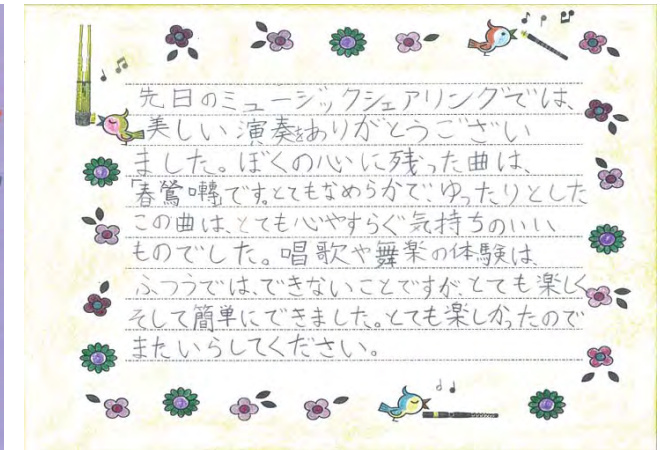 先日のミュージックシェアリングでは、
美しい演奏をありがとうござい
ました。ぼくの心に残った曲は、
「春鶯囀」です。とてもなめらかで、ゆったりとした
この曲は、とても心やすらぐ気持ちのいい
ものでした。唱歌や舞楽の体験は、
ふつうでは、できないことですが、とても楽しく
そして簡単にできました。とても楽しかったので
またいらしてください。